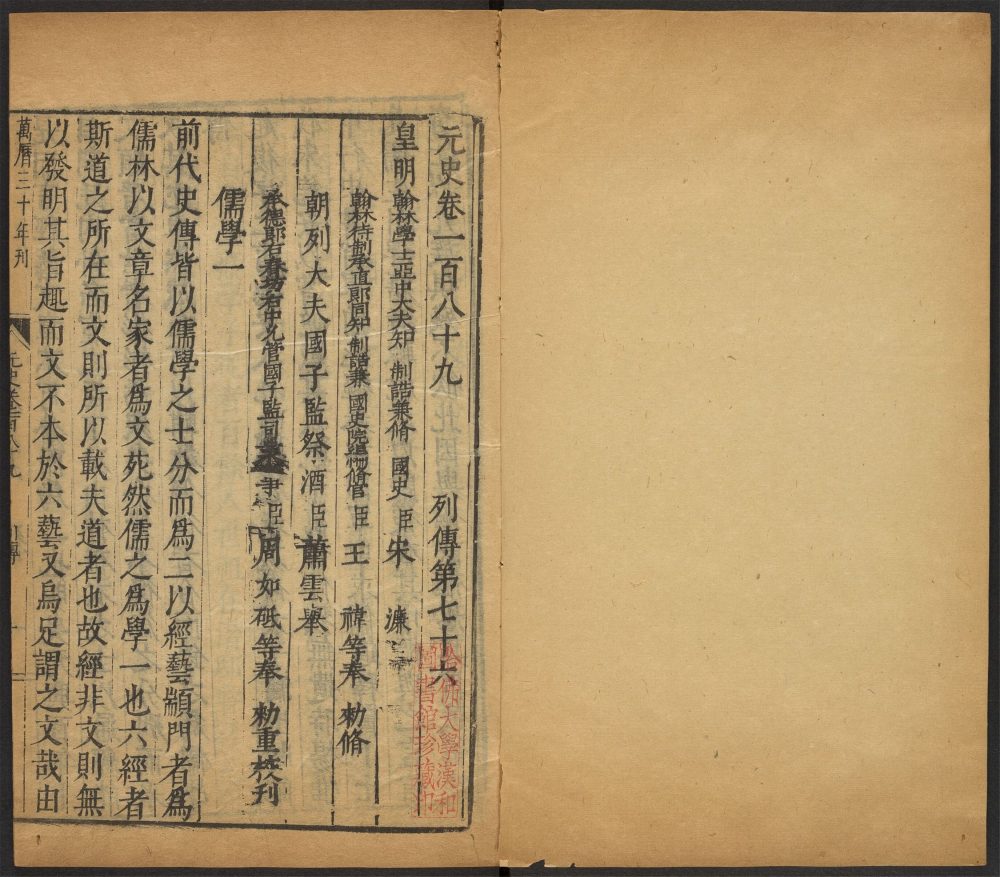 元史卷一百八十九　列傳第七十六
皇明翰林學士亞中大夫知　制誥兼脩　國史臣宋　濂
翰林待制承直郎同知　制誥兼　國史院編脩官臣王　禕等奉　勑脩
朝列大夫國子監祭酒臣蕭雲舉
承德郎右春坊右中允管國子監司業事臣周如砥等奉　勑重校刊
儒學一
前代史傳皆以儒學之士分而爲二以經藝顓門者爲
儒林以文章名家者爲文苑然儒之爲學一也六經者
斯道之所在而文則所以載夫道者也故經非文則無
以發明其旨趣而文不本於六藝又烏足謂之文哉由
萬曆三十年刊
元史卷一百八十九　列傳　一
哈佛大學漢和
圖書館珍藏印